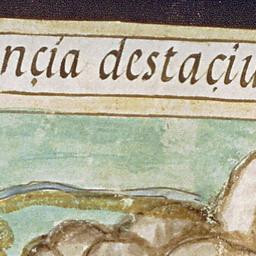 nçía destaçiu